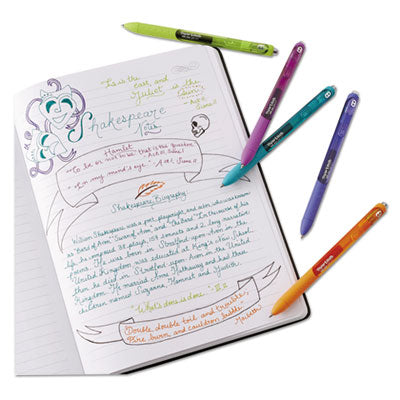 is the east, and
Juliet is the
sun!
Shakespeare
Notes
Hamlet
"To be or not to be that is the question
"In my mind's eye."
Shakespeare Biography:
William Shakespeare was a poet, playwright and actor who was known
as "Bard of Avon," Swan of Avon, and "The Bard". In the review of his
life he composed 38 plays, 154 sonnets and 2 long narrative
poems. He was born in Stratford-upon-Avon in the
United Kingdom was educated at King's New School
then he died in Stratford upon Avon in the United
Kingdom. He married Anne Hathaway and had three
children named Susanna, Hamnet and Judith.
"What's done is done."
Double, double toil and trouble,
Fire burn and cauldron bubble"
Macbeth